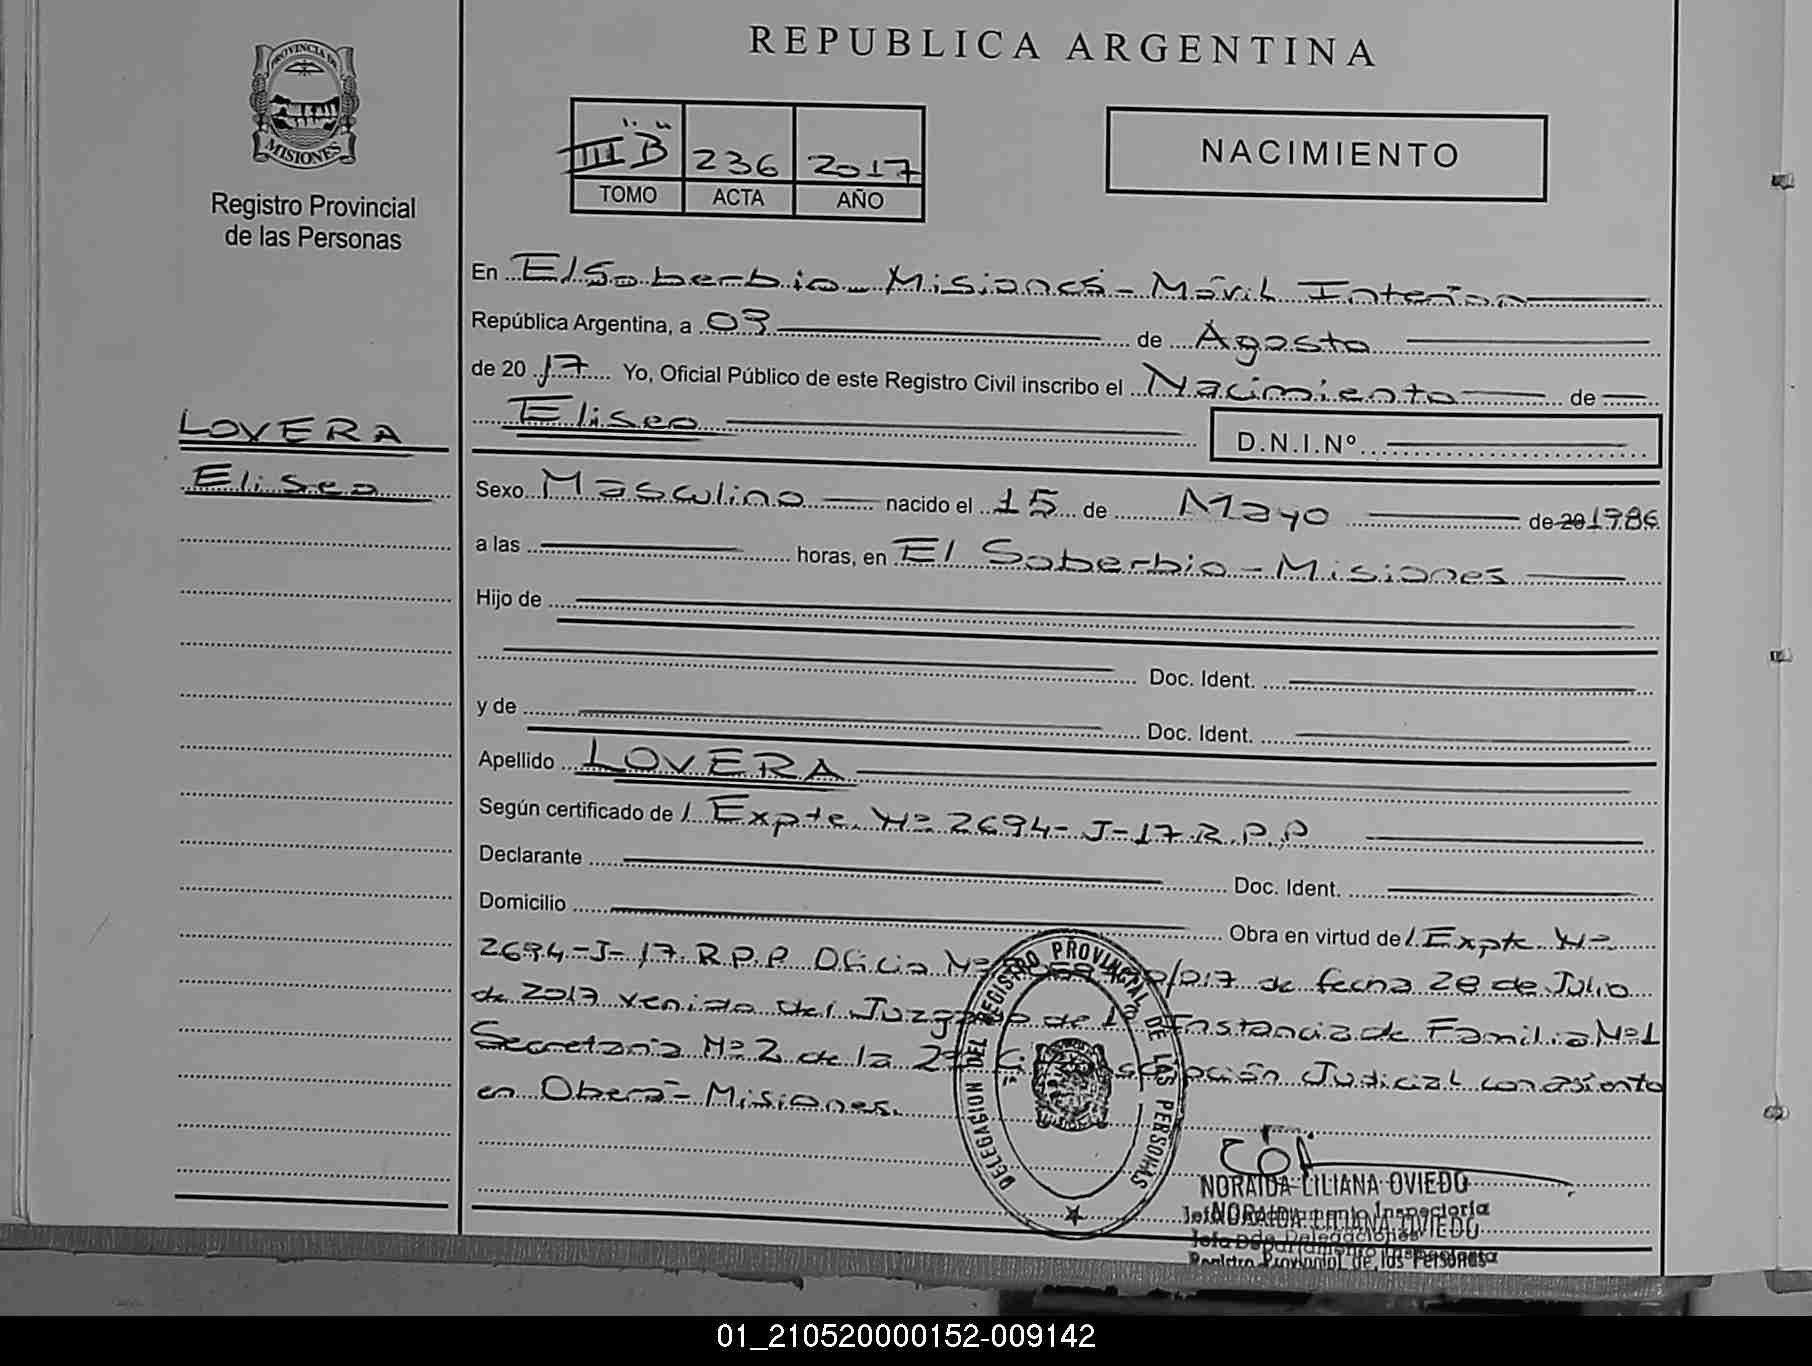 REPUBLICA ARGENTINA
PROVINCIA DE
MISIONES
Registro Provincial
de las Personas
III "B" 236 2017
TOMO ACTA AÑO
NACIMIENTO
En El Soberbio - Misiones - Móvil Interior
República Argentina, a 03 de Agosto
de 2017 Yo, Oficial Público de este Registro Civil inscribo el Nacimiento de
Eliseo D.N.I.Nº
LOVERA
Eliseo
Sexo Masculino nacido el 15 de Mayo de 20 1986
a las horas, en El Soberbio - Misiones
Hijo de
Doc. Ident.
y de Doc. Ident.
Apellido LOVERA
Según certificado de /. Expte. Nº 2694-J-17 R.P.P
Declarante Doc. Ident.
Domicilio Obra en virtud de /. Expte Nº
2694-J-17 R.P.P Oficio Nº /2017 de fecha 28 de Julio
de 2017 venido del Juzgado de 1ª Instancia de Familia Nº1
Secretaria Nº2 de la 2ª Circunscripción Judicial con asiento
en Oberá - Misiones.
DELEGACION DEL REGISTRO PROVINCIAL DE LAS PERSONAS
NORAIDA LILIANA OVIEDO
NORAIDA LILIANA OVIEDO
Jefa Departamento Inspectoria
Registro Provincial de las Personas
01_210520000152-009142